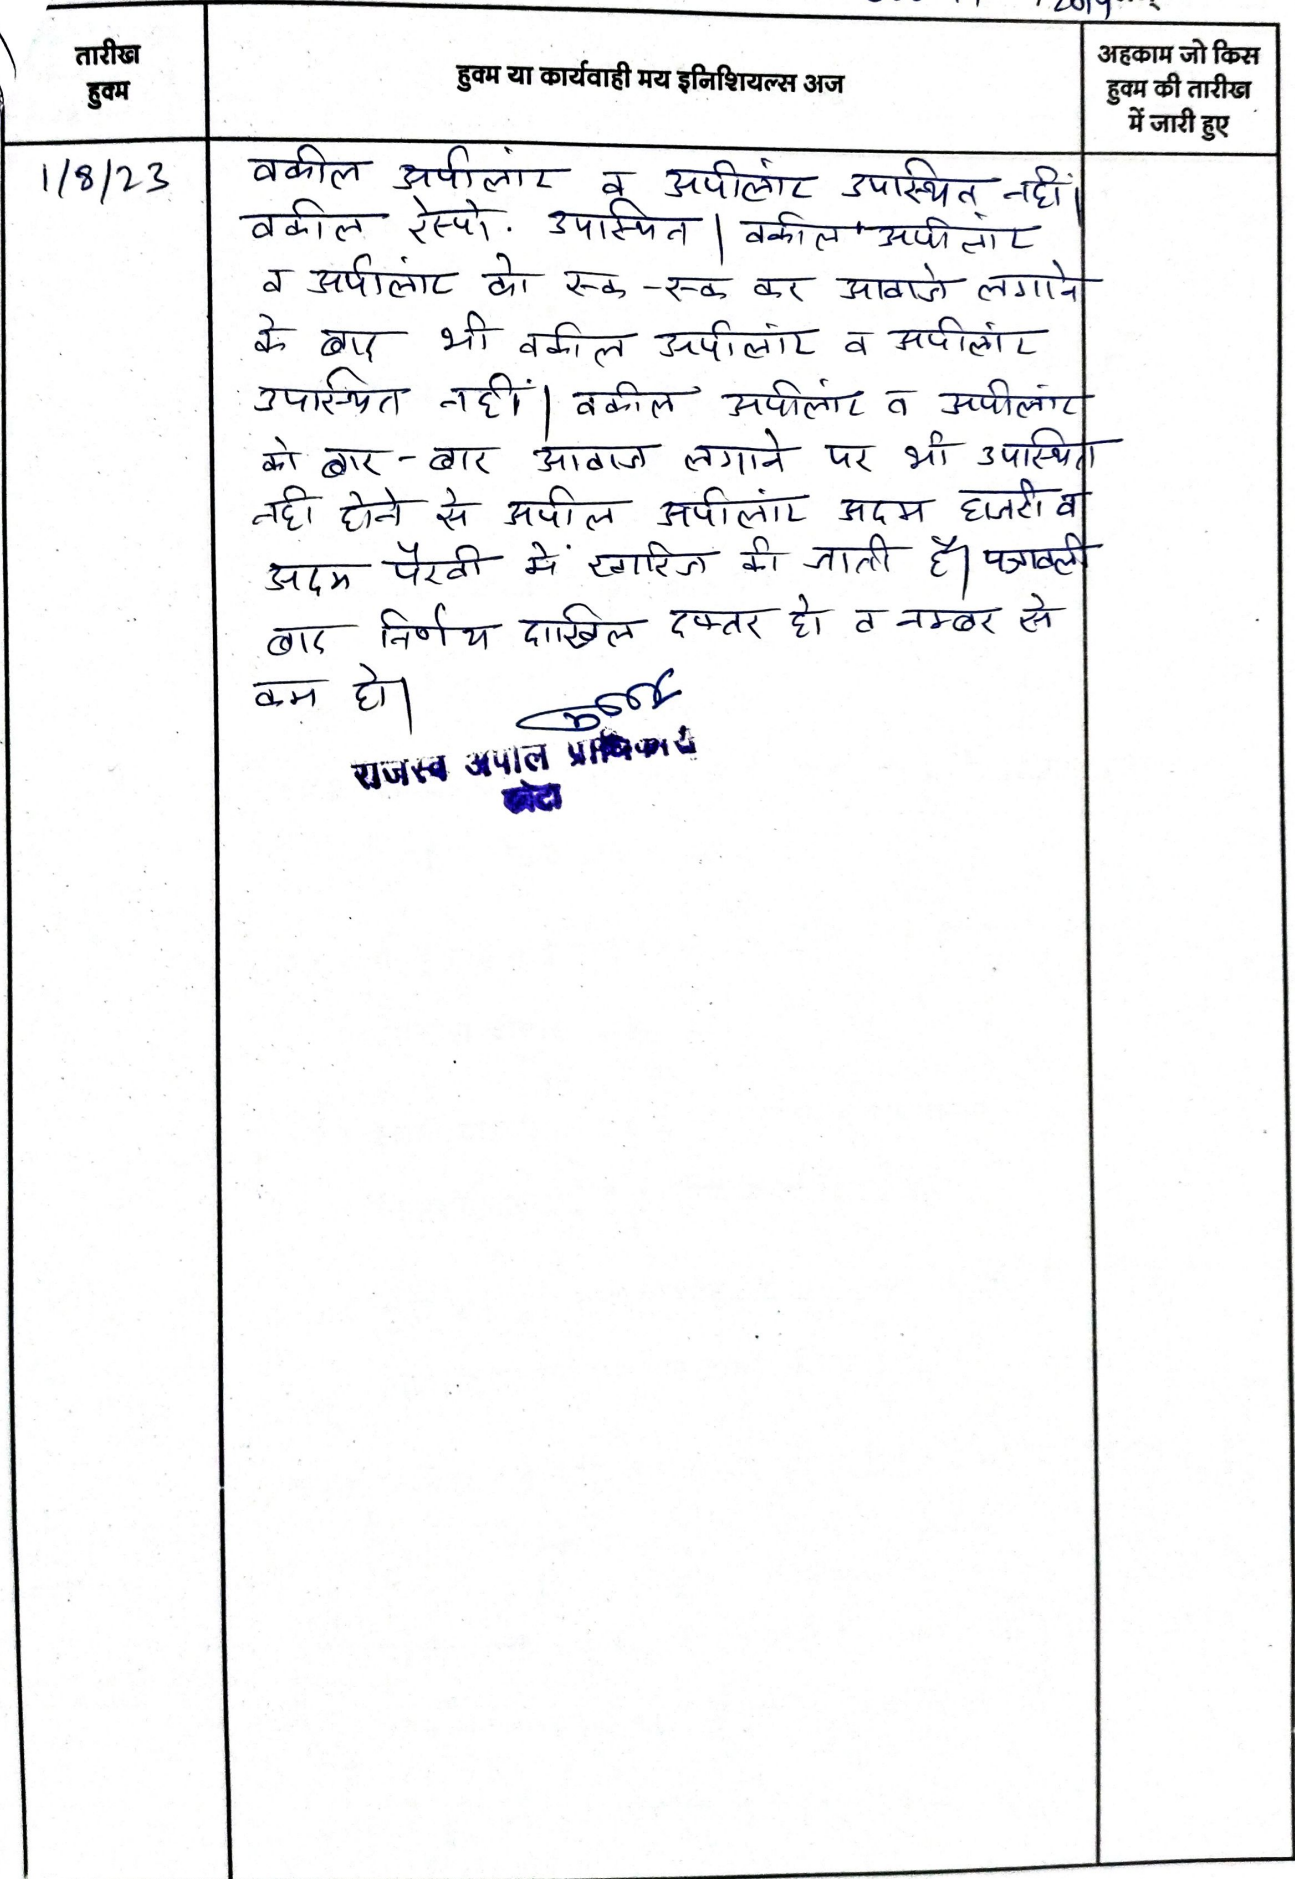 तारीख
हुक्म
हुक्म या कार्यवाही मय इनिशियल्स अज
अहकाम जो किस
हुक्म की तारीख
में जारी हुए
1/8/23
वकील अपीलांट व अपीलांट उपस्थित नहीं।
वकील रेस्पो. उपस्थित। वकील अपीलांट
व अपीलांट को रूक-रूक कर आवाजे लगाने
के बाद भी वकील अपीलांट व अपीलांट
उपस्थित नहीं। वकील अपीलांट व अपीलांट
को बार-बार आवाज लगाने पर भी उपस्थित
नही होने से अपील अपीलांट अदम हाजरी व
अदम पैरवी में खारिज की जाती है। पत्रावली
बाद निर्णय दाखिल दफ्तर हो व नम्बर से
कम हो।
राजस्व अपील प्राधिकारी
कोटा